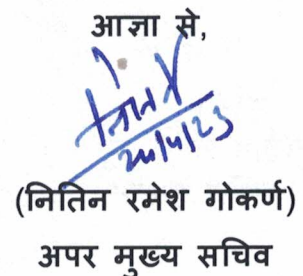 आज्ञा से,
20/4/23
(नितिन रमेश गोकर्ण)
अपर मुख्य सचिव